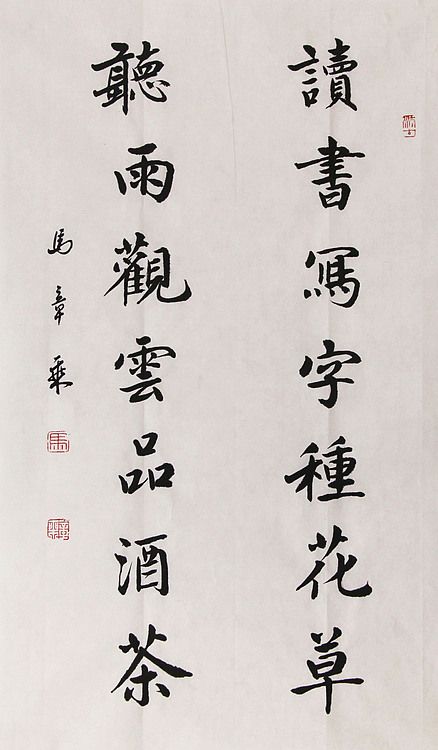 讀書寫字種花草
聽雨觀雲品酒茶
馬章乘
馬